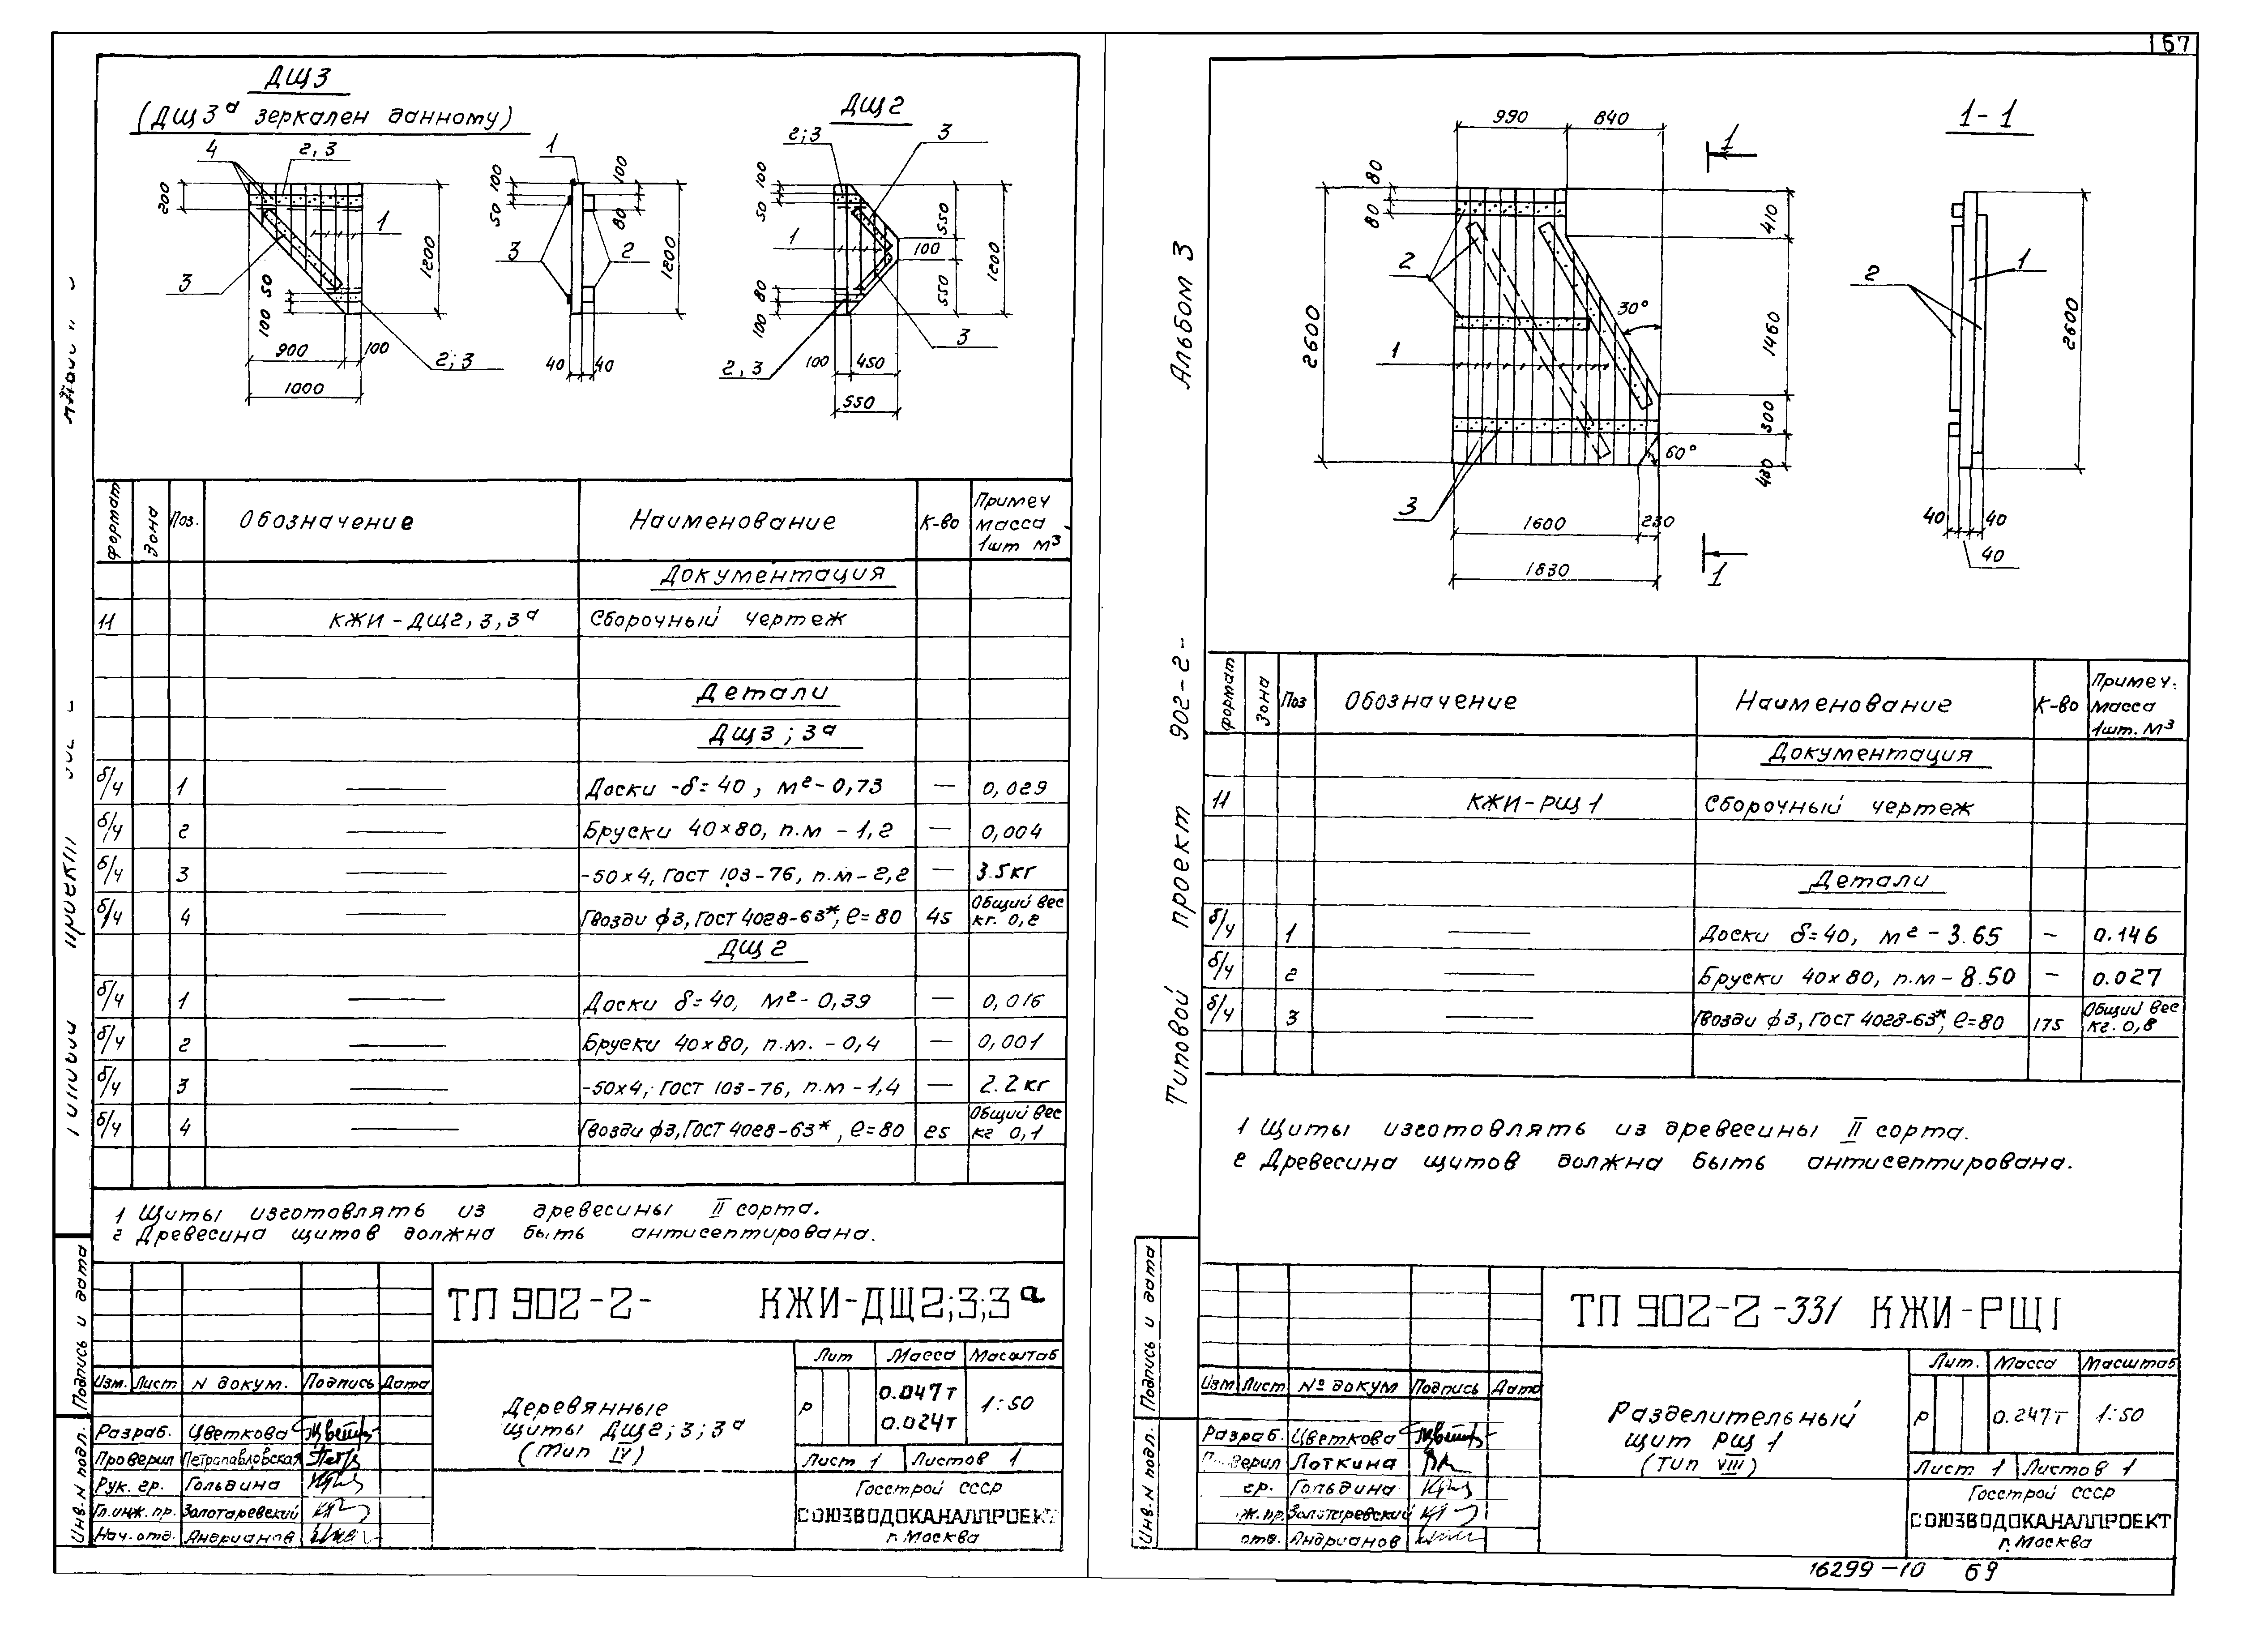 67
ДЩ3
(ДЩ3а зеркален данному)
4
2,3
200
1
3
50
100
1200
900
100
1000
2;3
1
100
50
100
80
3
2
1200
40
40
ДЩ2
2;3
3
100
50
1
80
100
550
100
550
1200
3
2,3
100
450
550
формат
Зона
Поз.
Обозначение
Наименование
К-во
Примеч масса 1шт м3
Документация
11 КЖИ-ДЩ2,3,3а Сборочный чертеж
Детали
ДЩ3; 3а
б/ч 1 Доски -δ=40, м2-0,73 — 0,029
б/ч 2 Бруски 40×80, п.м -1,2 — 0,004
б/ч 3 -50×4, Гост 103-76, п.м-2,2 — 3.5кг
б/ч 4 Гвозди ф3, Гост 4028-63*, ℓ=80 45 Общий вес кг. 0,2
ДЩ2
б/ч 1 Доски δ=40, м2-0,39 — 0,016
б/ч 2 Бруски 40×80, п.м. -0,4 — 0,001
б/ч 3 -50×4, Гост 103-76, п.м -1,4 — 2.2кг
б/ч 4 Гвозди ф3, Гост 4028-63*, ℓ=80 25 Общий вес кг 0,1
1 Щиты изготовлять из древесины II сорта.
2 Древесина щитов должна быть антисептирована.
ТП 902-2- КЖИ-ДЩ2;3;3а
Изм. Лист N докум. Подпись Дата
Разраб. Цветкова
Проверил Петропавловская
Рук. гр. Гольдина
Гл.инж.пр. Золотаревский
Нач. отд. Андрианов
Деревянные
щиты ДЩ2;3;3а
(Тип IV)
Лит Масса Масштаб
р 0.047т 1:50
0.024т
Лист 1 Листов 1
Госстрой СССР
СОЮЗВОДОКАНАЛПРОЕКТ
г. Москва
Подпись и дата
Инв. N подл.
Альбом 3
Типовой проект 902-2-
990
840
1
1-1
80
80
2600
2
1
3
30°
60°
410
1460
300
430
1600
230
1830
1
2
1
2600
40
40
40
формат
Зона
Поз
Обозначение
Наименование
К-во
Примеч. масса 1шт. м3
Документация
11 КЖИ-РЩ1 Сборочный чертеж
Детали
б/ч 1 Доски δ=40, м2-3.65 - 0.146
б/ч 2 Бруски 40×80, п.м-8.50 - 0.027
б/ч 3 Гвозди ф3, Гост 4028-63*, ℓ=80 175 Общий вес кг. 0,8
1 Щиты изготовлять из древесины II сорта.
2 Древесина щитов должна быть антисептирована.
ТП 902-2-331 КЖИ-РЩ1
Изм Лист № докум Подпись Дата
Разраб. Цветкова
Лоткина
гр. Гольдина
Золотаревский
отд. Андрианов
Разделительный
щит РЩ1
(Тип VIII)
Лит. Масса Масштаб
р 0.247т 1:50
Лист 1 Листов 1
Госстрой СССР
СОЮЗВОДОКАНАЛПРОЕКТ
г. Москва
Подпись и дата
Инв. N подл.
16299-10 69